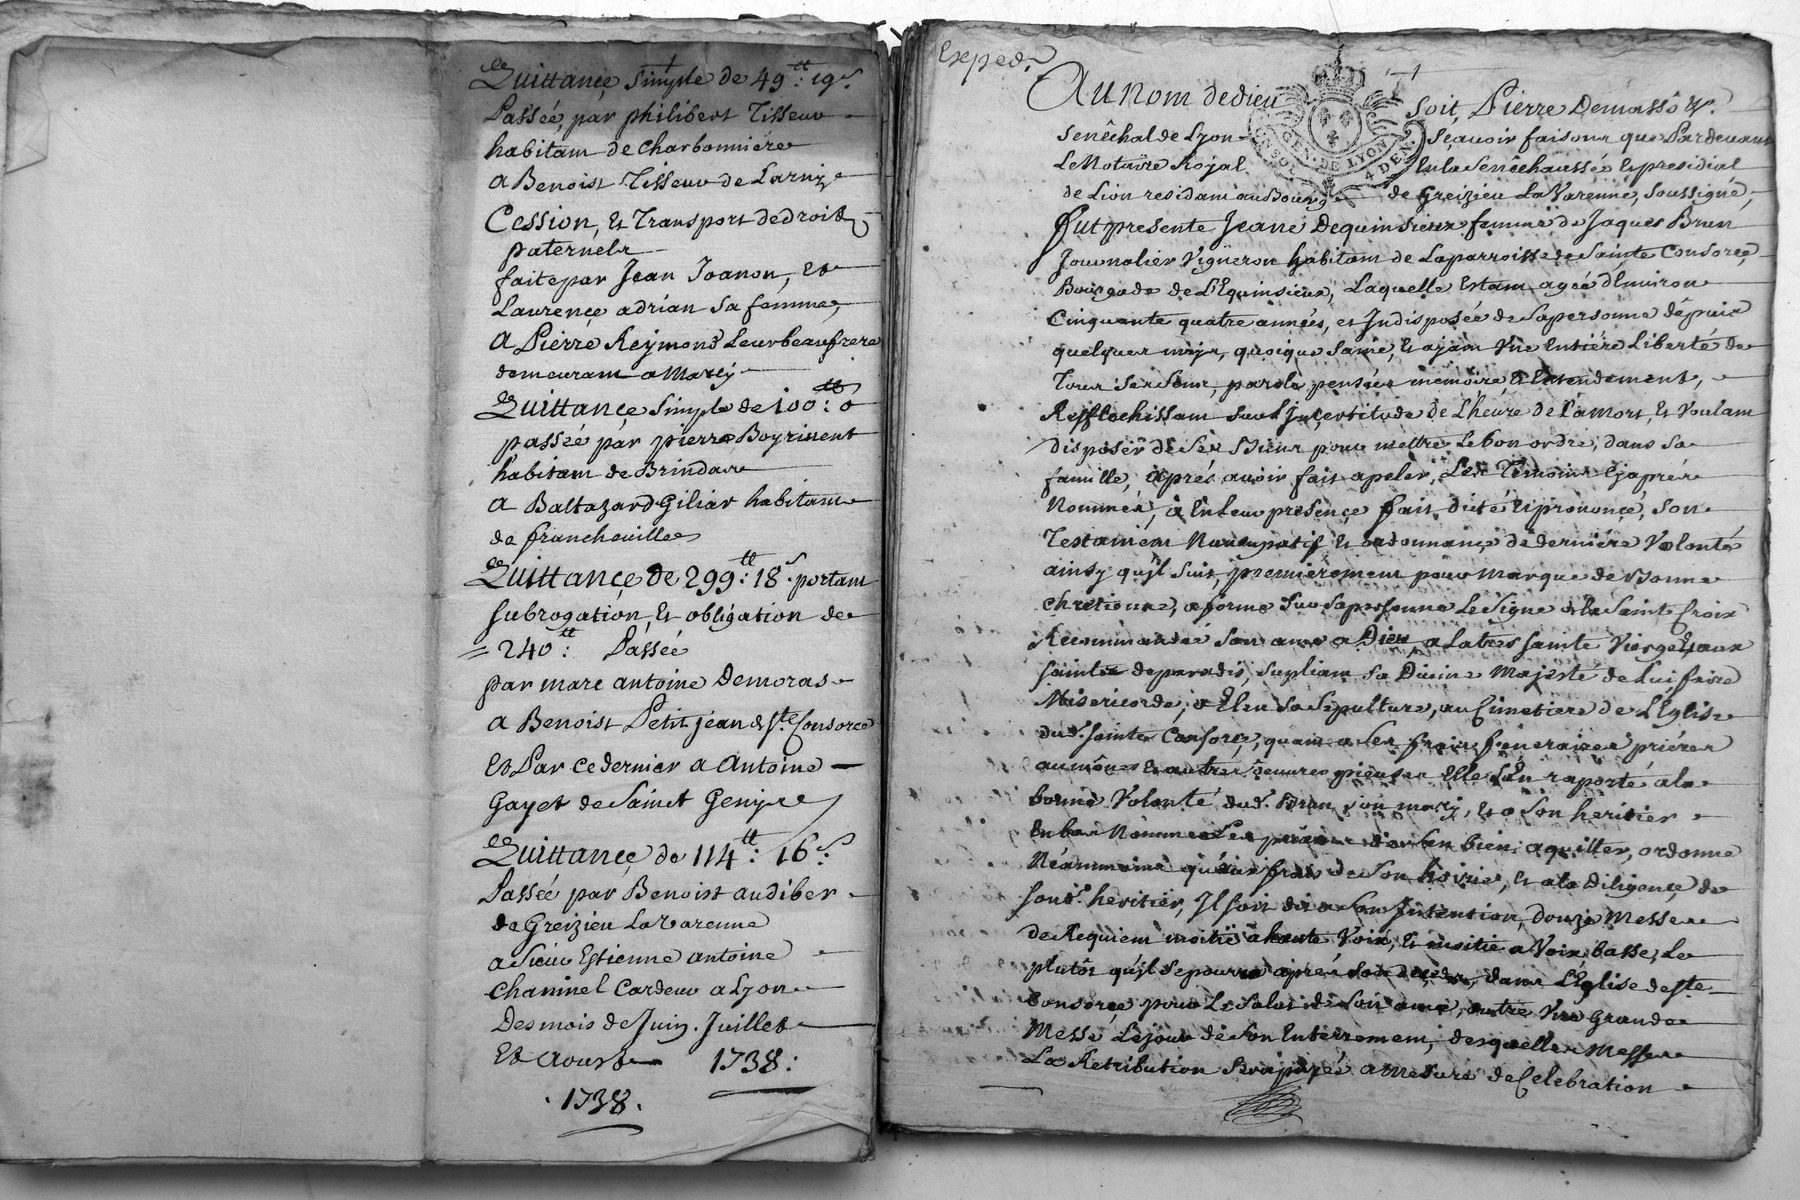 Quittance simple de 49tt: 19s
Passée, par philibert Tisseur
habitam de charbonniére
a Benoist Tisseur de Larny
Cession, et Transport de droits
paternels
faite par Jean Joanon, et
Laurençe adrian sa femme,
a Pierre Reymond Leur beaufrere
demeuram a Marcy
Quittançe simple de 100tt: 0
passée par pierre Boyrivent
habitam de Brindas
a Baltazard Giliar habitam
de francheville
Quittançe de 299tt: 18s. portam
subrogation, et obligation de
= 240tt: Passée
par marc antoine Demoras
a Benoist Petit jean de Ste. Consorce
Et Par ce dernier a Antoine
Gayet de Sainct Genis
Quittançe de 114tt: 16s:
Passée par Benoist audiber
de Greizieu La Varenne
a Sieur Estienne antoine
Chaninel Cardeur a Lyon
Des mois de Juin, Juillet
Et aoust 1738:
. 1738.
Exped.
Au nom de dieu soit, Pierre Demassô
Senêchal de Lyon Sçauoir faisons que Pardeuant
Le Notaire Royal En la Senêchaussée et presidial
GEN. DE LYON
4 DEN.
de Lion residam au Bourg de Greizieu La Varenne, soussigné,
Fut presente Jeane Dequinsieux femme de Jaques Brun
Journalier Vigneron habitam de La parroisse de Sainte Consorce,
Bourgade de L'Equinsieux, Laquelle Estam agée d'Enuiron
Cinquante quatre années, et Indisposée de sa personne dêpuis
quelques mois, quoique saine, et ayam Vne Entiére Liberté de
Tous ses sens, parole, pensées memoire et Entendement,
Refflechissam sur L'jncertitude de L'heure de La mort, et Voulam
disposer de Ses Biens pour mettre Le bon ordre, dans sa
famille, après auoir fait apeler, Les Témoins Cyaprés
Nommés, a En Leur presençe fait dicté et prononçé, son
Testament Nuncupatif et ordonnançe de derniére Volonté
ainsy qu'jl suit, premiérement pour marque de Bonne
chrétienne, a formé sur sa personne Le Signe de la Sainte Croix
Recommandé son ame a Dieu, a La tres sainte Vierge et aux
saints de paradis, supliam Sa Diuine Majesté de Lui faire
Misericorde, a Eleu sa sepulture, au Cimetiere de L'Eglise
dud. Sainte Consorce, quant a ses frais funeraires priéres
aumônes et autres oeuures pieuses Elle s'En raporte a la
bonne Volonté dud. Brun son mary, et a son heritier
En bas Nommé Les priant de s'en bien aquitter, ordonne
Néammoins qu'aux frais de son hoirie, et a la Diligençe de
sond. heritier, Jl soit dit a son Intention, douze Messes
de Requiem moitié a haute Voix, et moitié a Voix basse, Le
plutôt qu'jl se pourra aprés son deçés, dans L'Eglise de Ste.
Consorçe pour Le salut de son ame, outre Vne Grande
Messe Le jour de son Enterrement, desquelles Messes
La Rétribution Sera payée a Mesure de Celebration